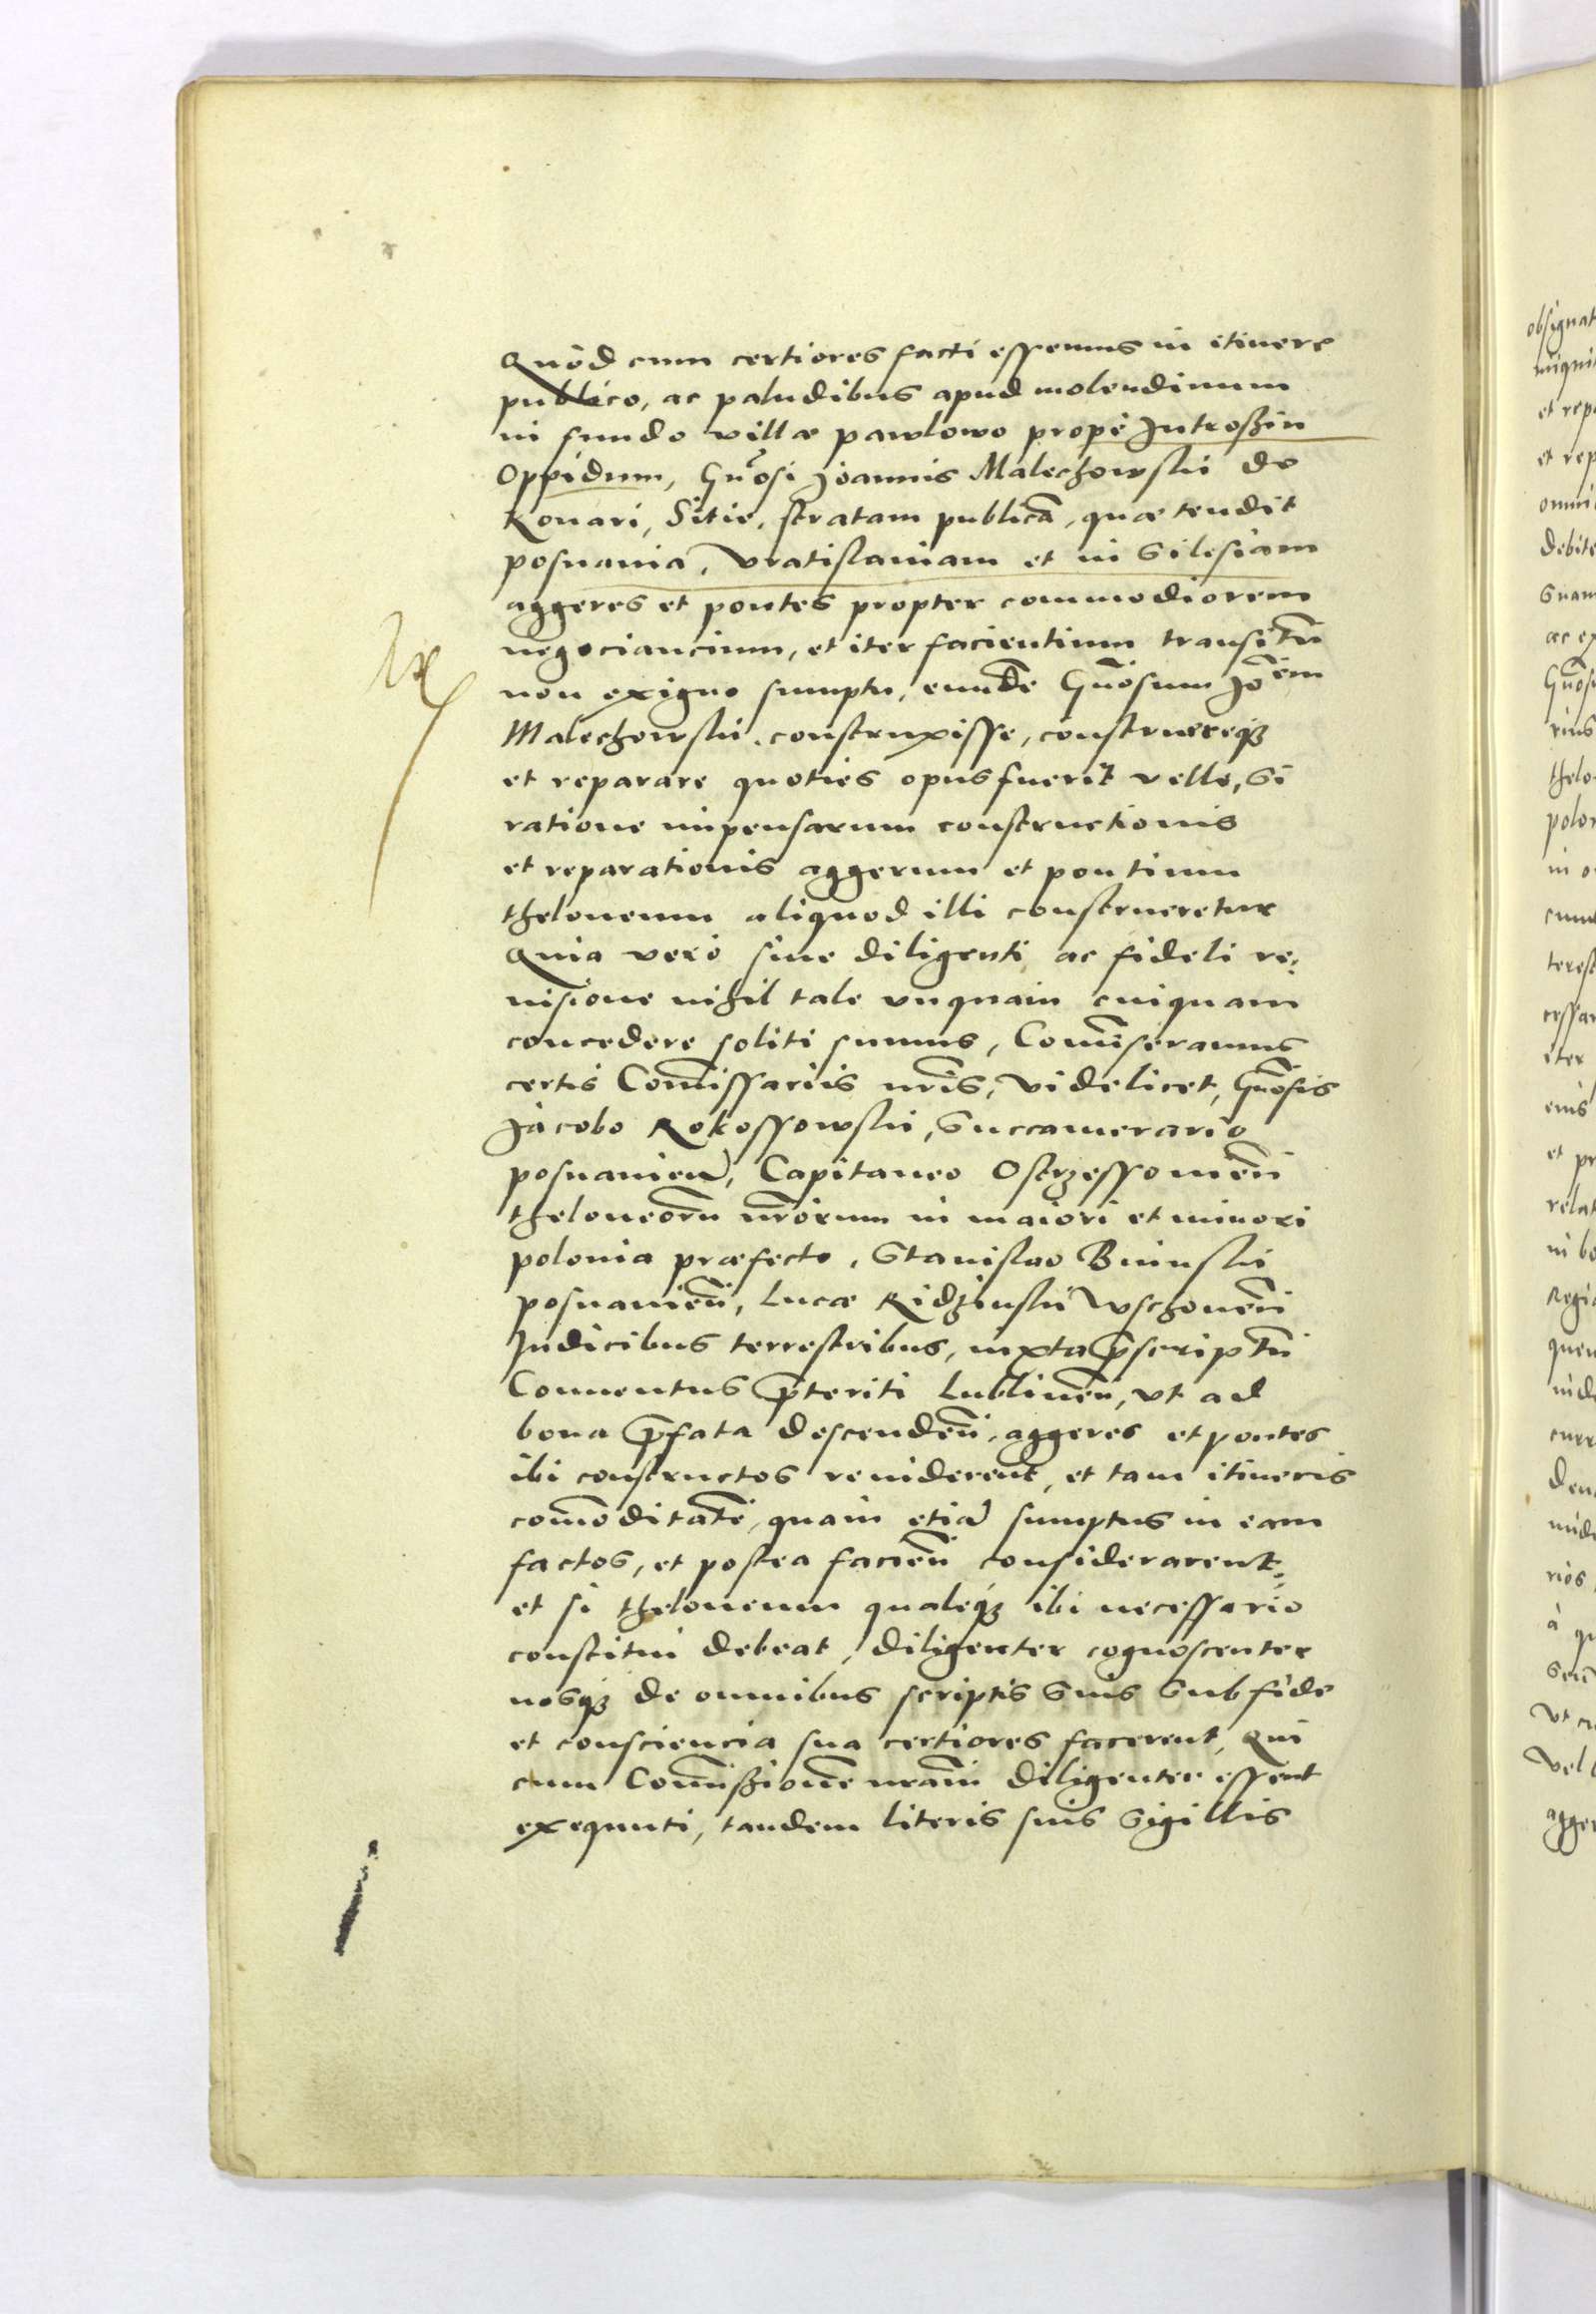 Quod cum certiores facti essemus in itinere
publico, ac paludibus apud molendinum
in fundo villæ pawlowo propè Jutroßin
Oppidum, Gn̄osi Joannis Malechowski de
Konari, Sitis, stratam publicā, quæ tendit
posnania, Vratislauiam et in Silesiam
aggeres et pontes propter commodiorem
negociancium, et iter facientium transitū
non exiguo sumptu, eundē Gn̄osum Joēm
Malechowski construxisse, construereqꜗ
et reparare quoties opus fuerit velle, Si
ratione impensarum constructionis
et reparationis aggerum et pontium
theloneum aliquod illi construeretur
Quia verò sine diligenti ac fideli re:
uisione nihil tale vnquam cuiquam
concedere soliti sumus, Com̄iseramus
certis Com̄issariis nr̄is, videlicet, Gn̄osis
Jacobo Rokossowski, Succamerario
posnanien̄, Capitaneo Ostrzessouien̄
theloneorū nr̄orum in maiori et minori
polonia præfecto, Stanislao Bninski
posnanien̄, Lucæ Ridzinski Wschouen̄
Judicibus terrestribus, iuxta p̄scriptū
Conuentus p̄teriti Lublinen̄, vt ad
bona p̄fata descenden̄, aggeres et pontes
ibi constructos reuiderent, et tam itineris
com̄oditatē, quam etiā sumptus in eam
factos, et postea facien̄ considerarent:
et si theloneum qualeqꜗ ibi necessario
constitui debeat, diligenter cognoscerent
nosqꜗ de omnibus scriptis suis sub fide
et consciencia sua certiores facerent, Qui
cum Com̄ißionē nr̄am diligenter essent
exequuti, tandem literis suis Sigillis